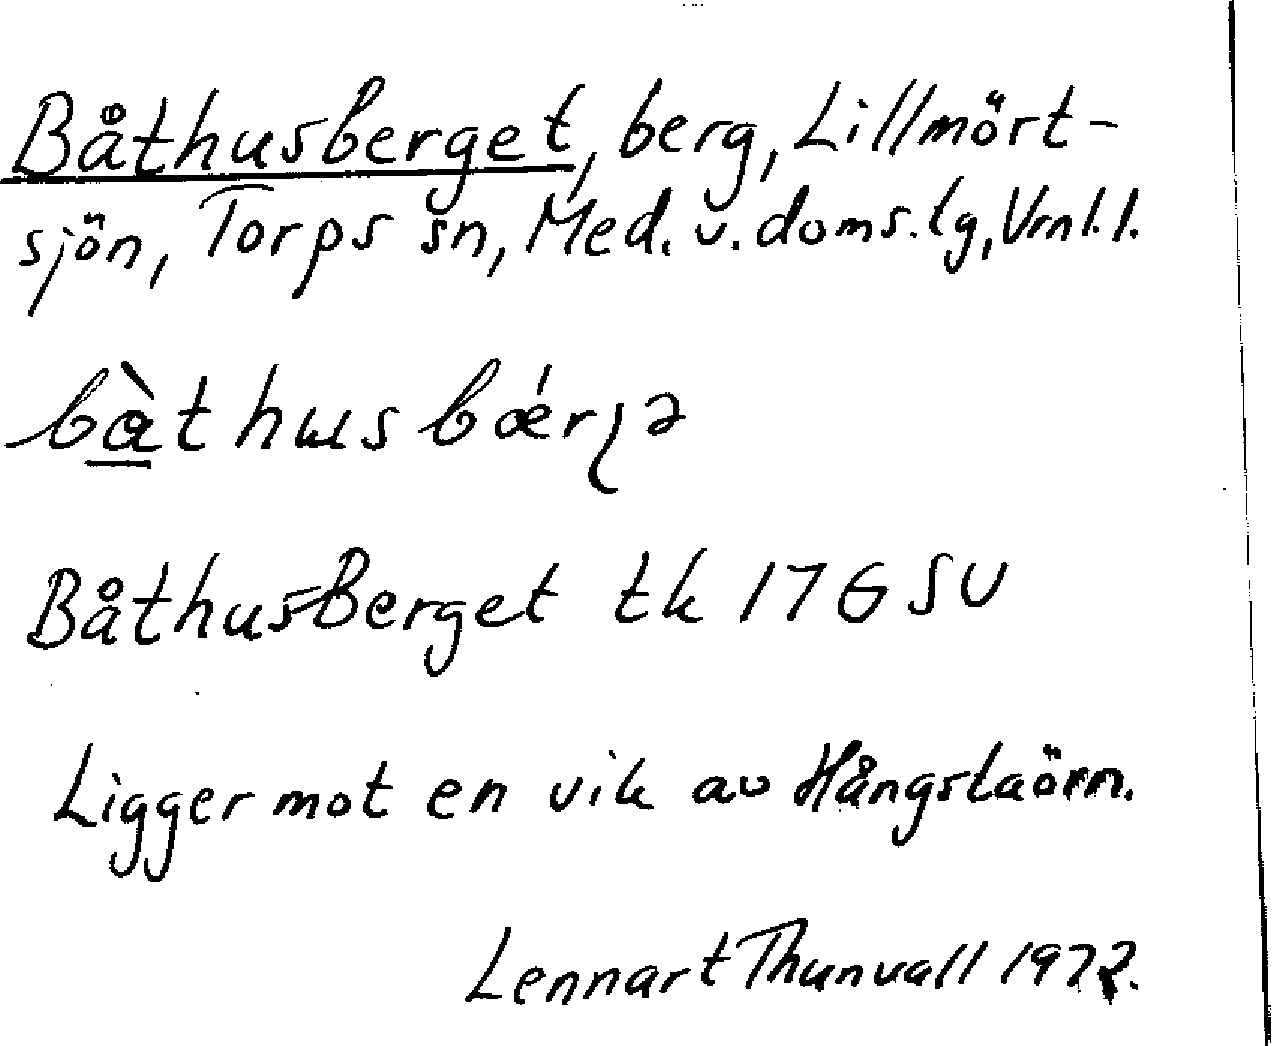 Båthusberget, berg, Lillmört-
sjön, Torps sn, Med. v. doms. lg, Vrnl. l.
båthusberget tk 17G SV
Ligger mot en vik av Hångstaörn.
Lennart Thunvall